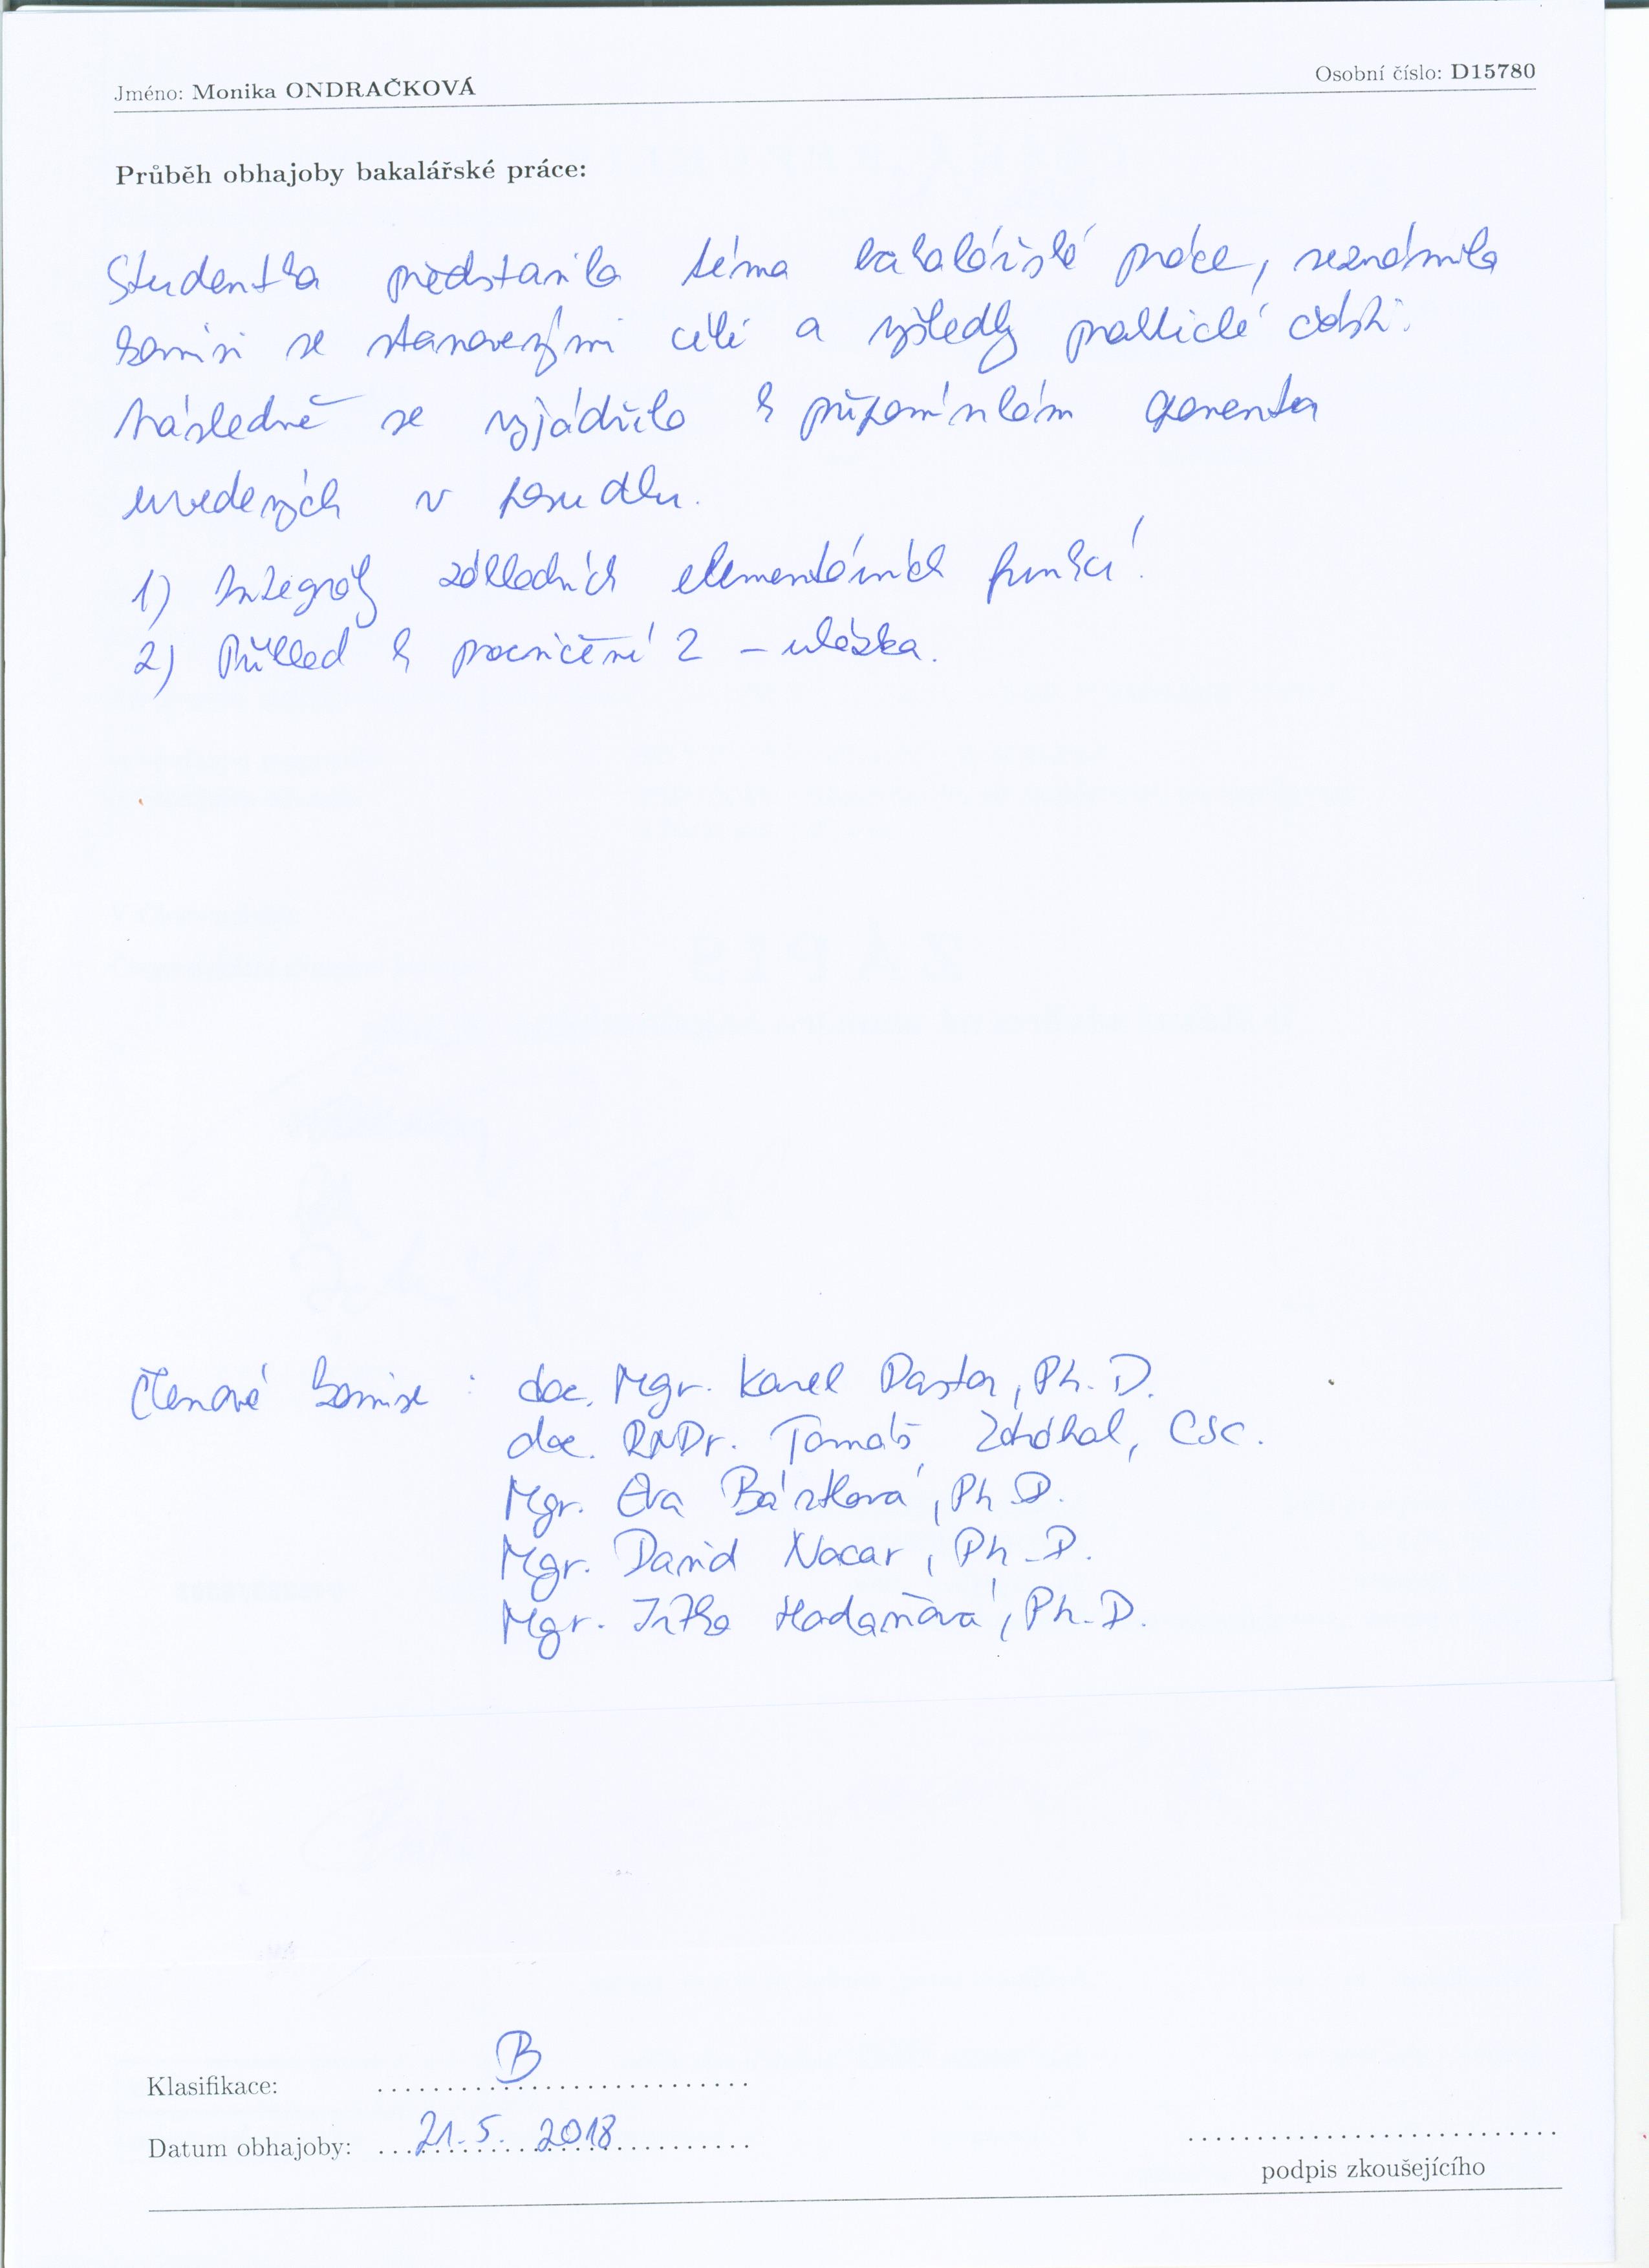 Jméno: Monika ONDRAČKOVÁ Osobní číslo: D15780
Průběh obhajoby bakalářské práce:
Studentka představila téma bakalářské práce, seznámila
komisi se stanovenými cíli a výsledky praktické části.
Následně se vyjádřila k připomínkám oponenta
uvedených v posudku.
1) Integrály základních elementárních funkcí.
2) Příklad k procvičení 2 – ukázka.
Členové komise : doc. Mgr. Karel Pastor, Ph.D.
doc. RNDr. Tomáš Zdráhal, CSc.
Mgr. Eva Bártková, Ph.D.
Mgr. David Nocar, Ph.D.
Mgr. Jitka Hodaňová, Ph.D.
Klasifikace: B
Datum obhajoby: 21.5. 2018
podpis zkoušejícího